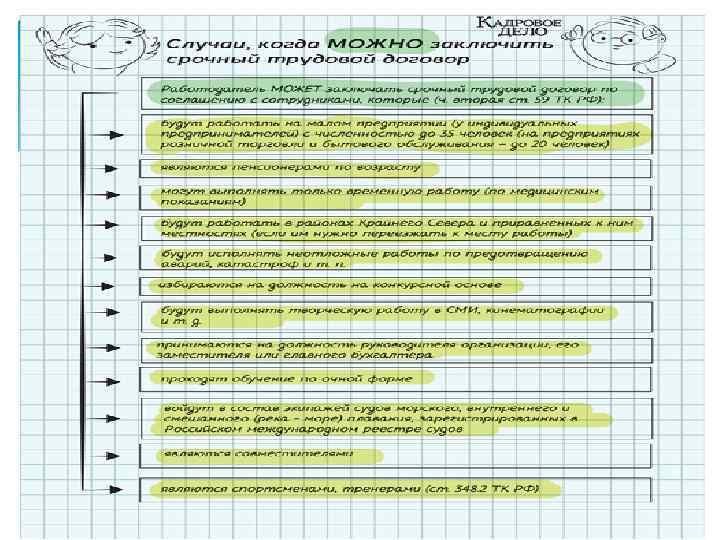 КАДРОВОЕ
ДЕЛО
Случаи, когда МОЖНО заключить
срочный трудовой договор
Работодатель МОЖЕТ заключать срочный трудовой договор по
соглашению с сотрудниками, которые (ч. вторая ст. 59 ТК РФ):
будут работать на малом предприятии (у индивидуальных
предпринимателей) с численностью до 35 человек (на предприятиях
розничной торговли и бытового обслуживания – до 20 человек)
являются пенсионерами по возрасту
могут выполнять только временную работу (по медицинским
показаниям)
будут работать в районах Крайнего Севера и приравненных к ним
местностях (если им нужно переезжать к месту работы)
будут исполнять неотложные работы по предотвращению
аварий, катастроф и т. п.
избираются на должность на конкурсной основе
будут выполнять творческую работу в СМИ, кинематографии
и т. д.
принимаются на должность руководителя организации, его
заместителя или главного бухгалтера
проходят обучение по очной форме
войдут в состав экипажей судов морского, внутреннего и
смешанного (река – море) плавания, зарегистрированных в
Российском международном реестре судов
являются совместителями
являются спортсменами, тренерами (ст. 348.2 ТК РФ)